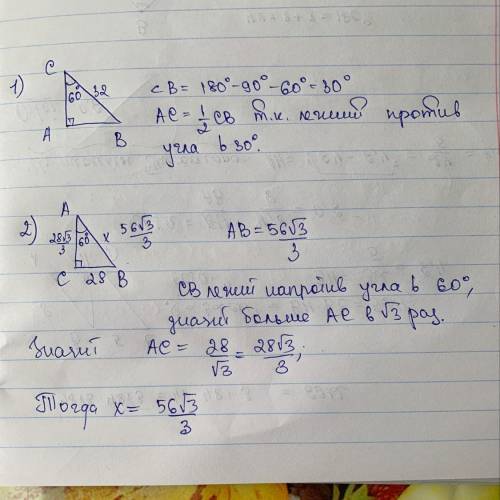 1) C 60° 32 A B
∠B = 180° - 90° - 60° = 30°
AC = 1/2 CB т.к. лежит против
угла в 30°.
2) A 28√3/3 60° x 56√3/3 C 28 B
AB = 56√3/3
CB лежит напротив угла в 60°,
значит больше AC в √3 раз.
Значит AC = 28/√3 = 28√3/3;
Тогда x = 56√3/3